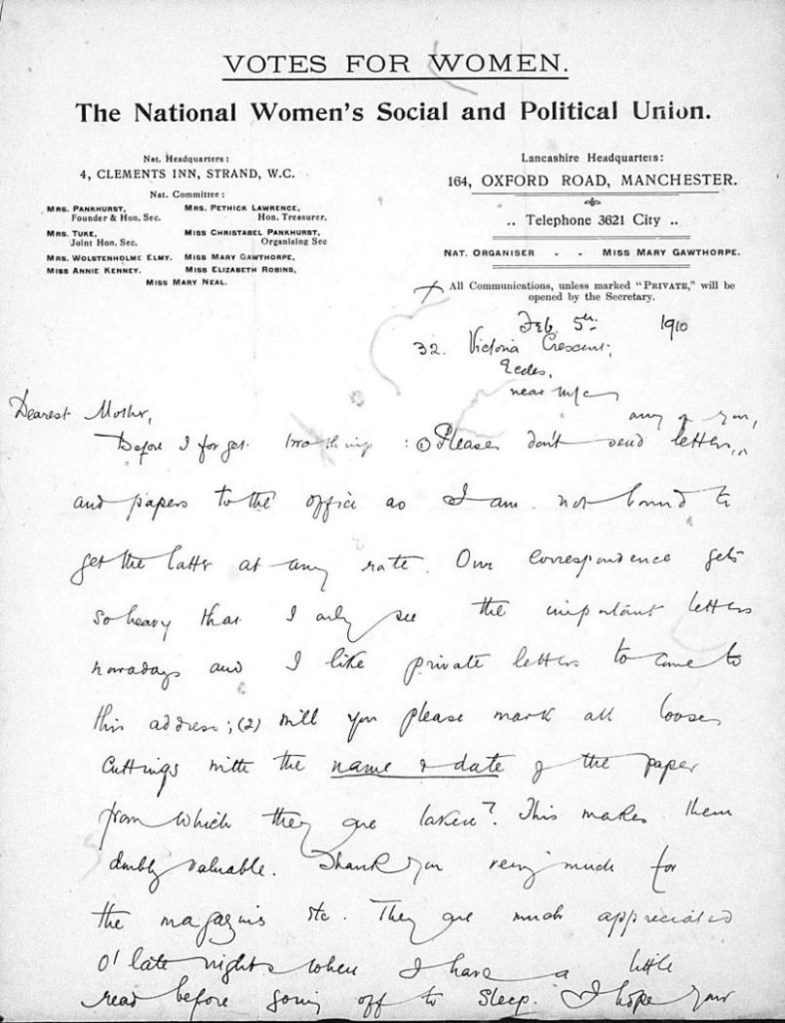 VOTES FOR WOMEN.
The National Women's Social and Political Union.
Nat. Headquarters:
4, CLEMENTS INN, STRAND, W.C.
Nat. Committee:
MRS. PANKHURST, MRS. PETHICK LAWRENCE,
Founder & Hon. Sec. Hon. Treasurer.
MRS. TUKE, MISS CHRISTABEL PANKHURST,
Joint Hon. Sec. Organising Sec
MRS. WOLSTENHOLME ELMY. MISS MARY GAWTHORPE,
MISS ANNIE KENNEY. MISS ELIZABETH ROBINS,
MISS MARY NEAL.
Lancashire Headquarters:
164, OXFORD ROAD, MANCHESTER.
.. Telephone 3621 City ..
NAT. ORGANISER - - MISS MARY GAWTHORPE.
All Communications, unless marked "PRIVATE," will be
opened by the Secretary.
Feb. 5th 1910
32. Victoria Crescent,
Eccles,
near M/c
Dearest Mother,
any of you,
Before I forget two things : (1) Please don't send letters,
and papers to the office as I am not bound to
get the latter at any rate. Our correspondence gets
so heavy that I only see the important letters
nowadays and I like private letters to come to
this address; (2) will you please mark all loose
cuttings with the name & date of the paper
from which they are taken? This makes them
doubly valuable. Thank you very much for
the magazines etc. They are much appreciated
o' late nights when I have a little
read before going off to sleep. I hope your